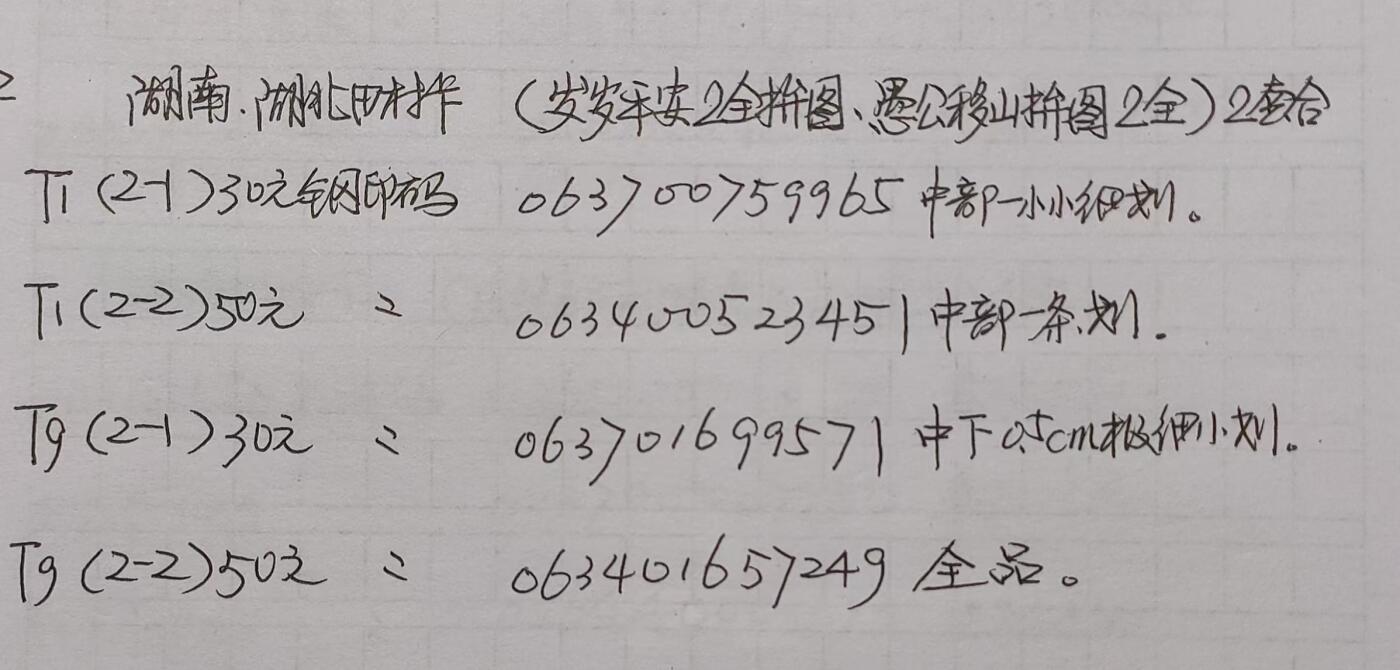 2 湖南.湖北田村卡 (岁岁平安2全拼图、愚公移山拼图2全)2套合
T1(2-1)30元全同印码 063700759965 中部一小小细划。
T1(2-2)50元 〃 063400523451 中部一条划.
T9(2-1)30元 〃 063701699571 中下0.5cm极细小划。
T9(2-2)50元 〃 063401657249 全品。